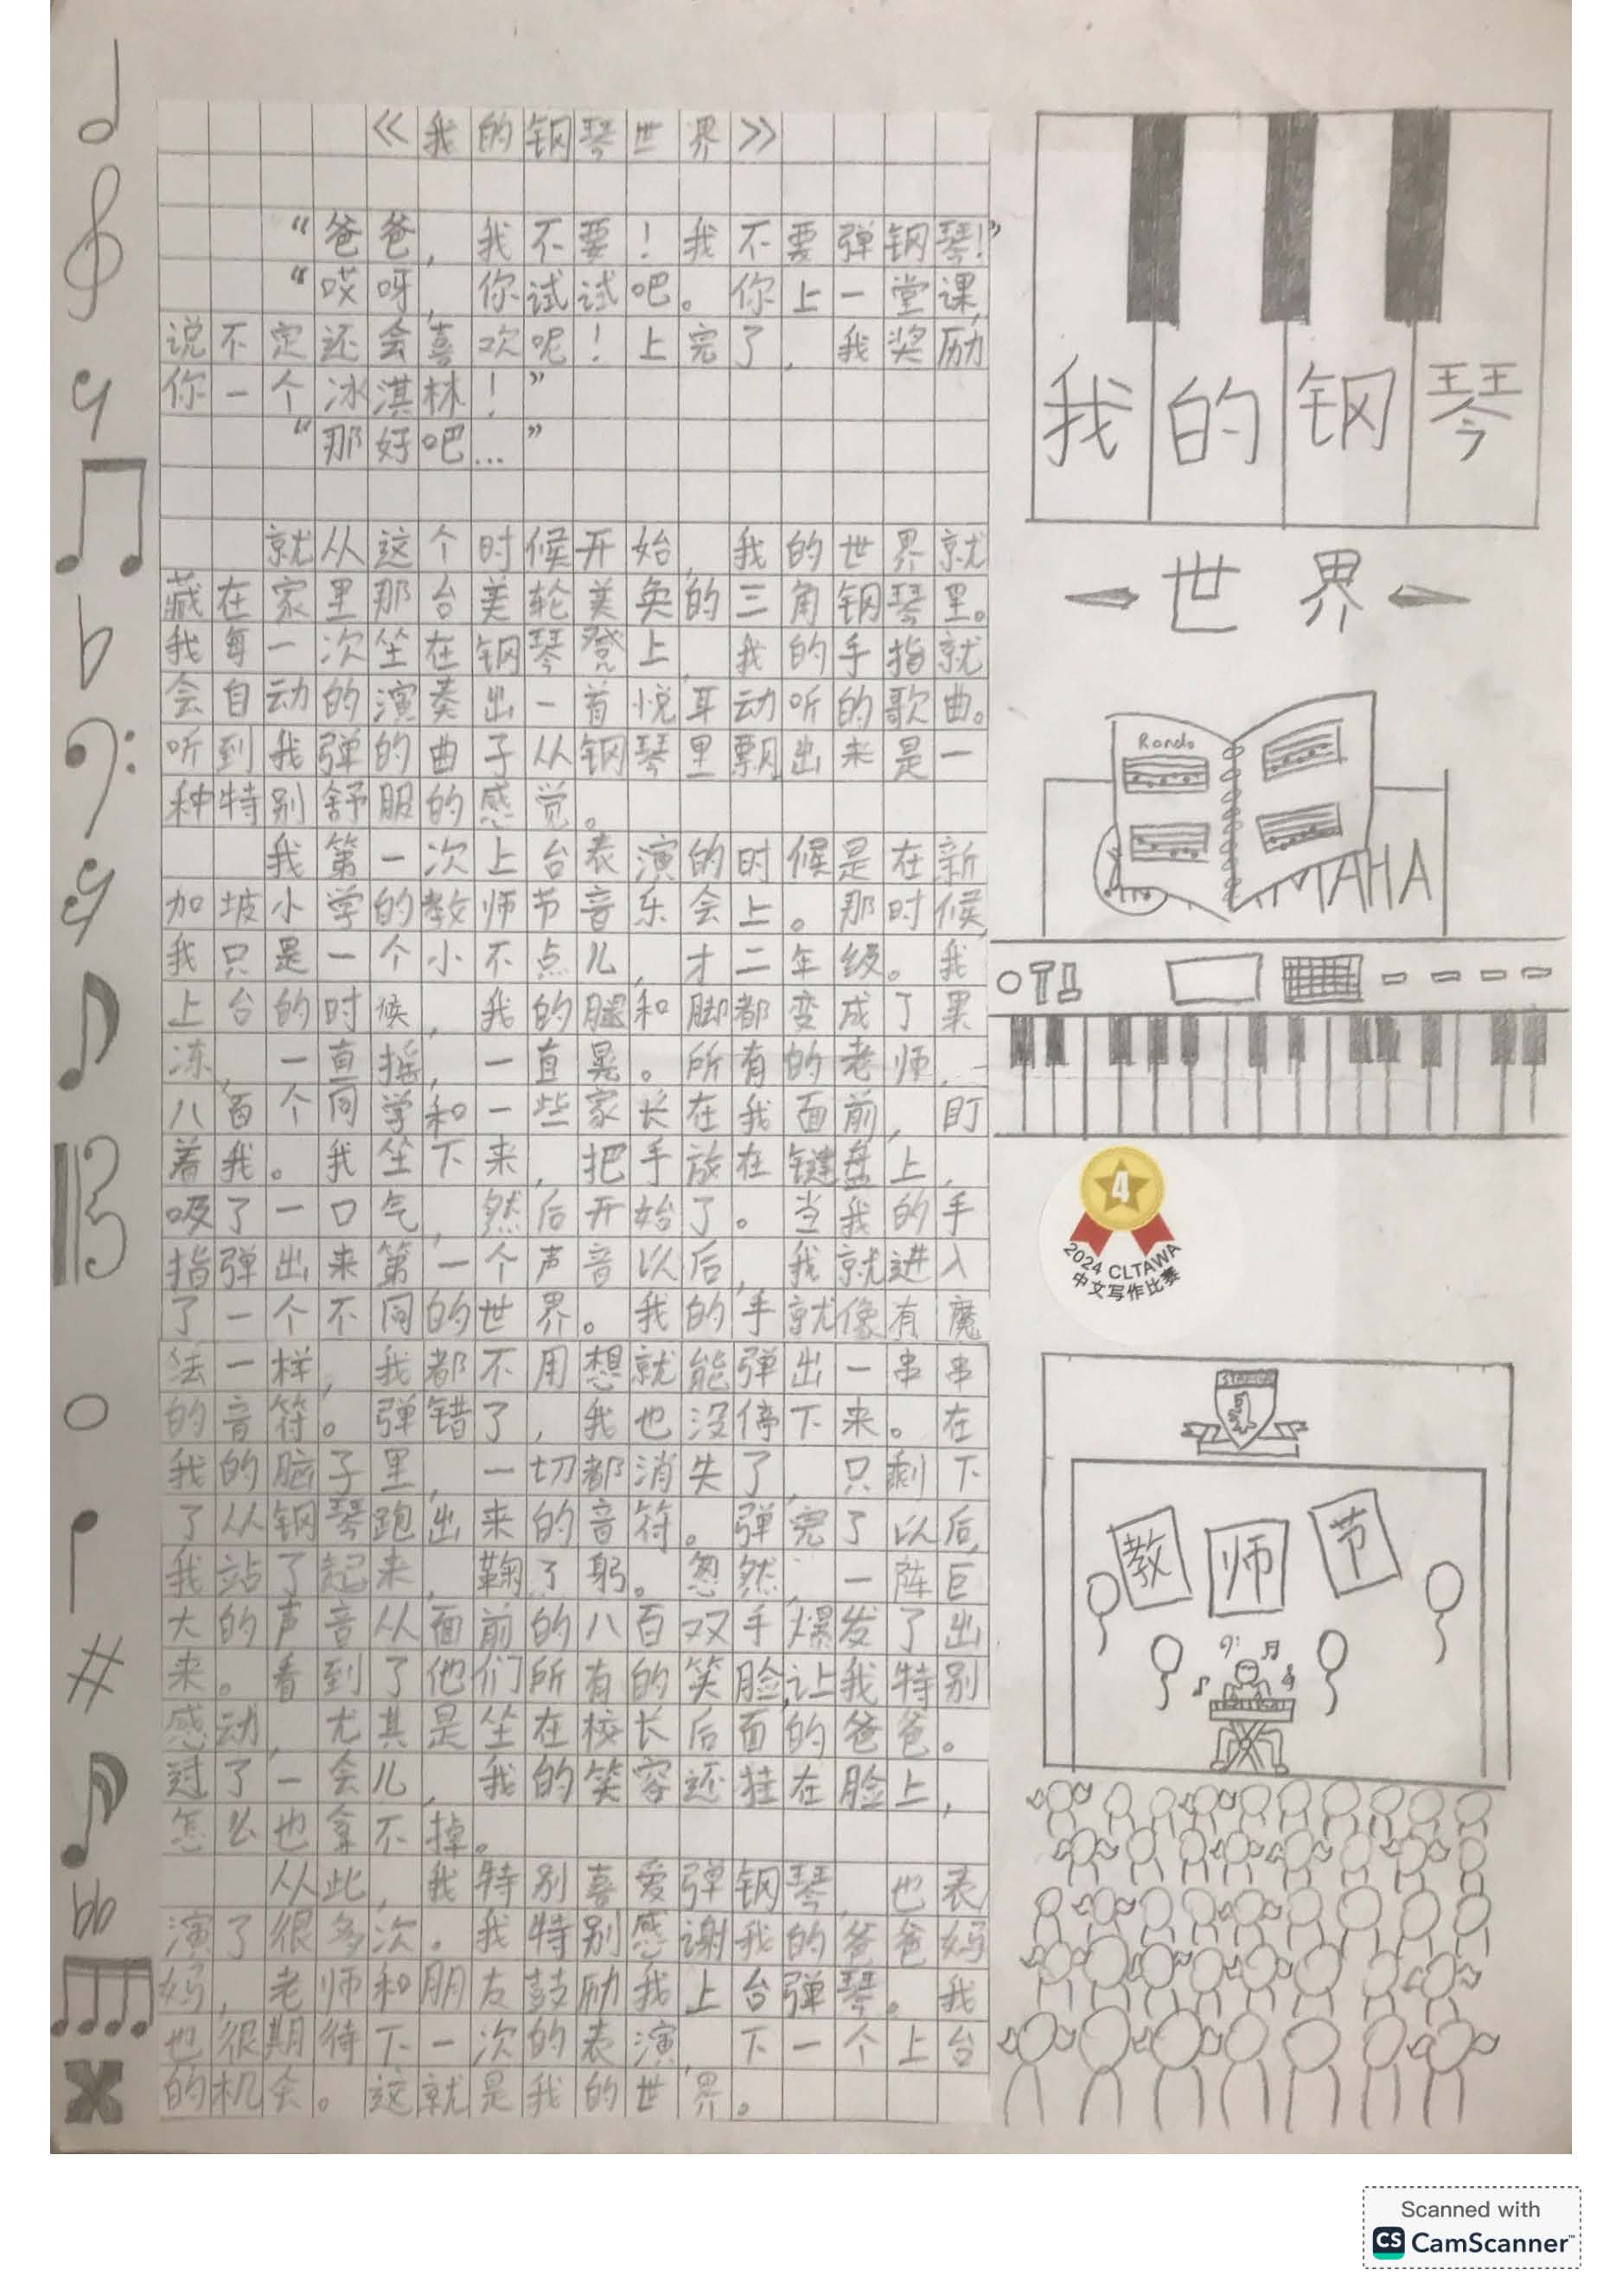 《我的钢琴世界》
“爸爸，我不要！我不要弹钢琴！”
“哎呀，你试试吧。你上一堂课，
说不定还会喜欢呢！上完了，我奖励
你一个冰淇林！”
“那好吧…”
就从这个时候开始，我的世界就
藏在家里那台美轮美奂的三角钢琴里。
我每一次坐在钢琴凳上，我的手指就
会自动的演奏出一首悦耳动听的歌曲。
听到我弹的曲子从钢琴里飘出来是一
种特别舒服的感觉。
我第一次上台表演的时候是在新
加坡小学的教师节音乐会上。那时候，
我只是一个小不点儿，才二年级。我
上台的时候，我的腿和脚都变成了果
冻，一直摇，一直晃。所有的老师，
八百个同学和一些家长在我面前，盯
着我。我坐下来，把手放在键盘上，
吸了一口气，然后开始了。当我的手
指弹出来第一个声音以后，我就进入
了一个不同的世界。我的手就像有魔
法一样，我都不用想就能弹出一串串
的音符。弹错了，我也没停下来。在
我的脑子里，一切都消失了，只剩下
了从钢琴跑出来的音符。弹完了以后，
我站了起来，鞠了躬。忽然，一阵巨
大的声音从面前的八百双手爆发了出
来。看到了他们所有的笑脸，让我特别
感动，尤其是坐在校长后面的爸爸。
过了一会儿，我的笑容还挂在脸上，
怎么也拿不掉。
从此，我特别喜爱弹钢琴，也表
演了很多次。我特别感谢我的爸爸妈
妈，老师和朋友鼓励我上台弹琴。我
也很期待下一次的表演，下一个上台
的机会。这就是我的世界。
我的钢琴
世界
Rondo
MAHA
4
2024 CLTAWA
中文写作比赛
教师节
Scanned with
CS CamScanner